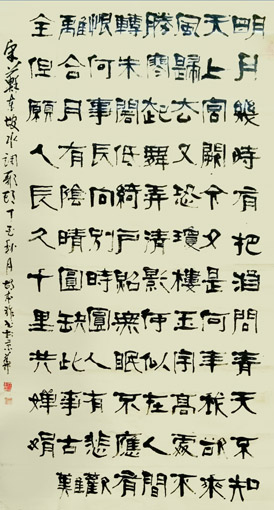 明月幾時有把酒問青天不知
天上宮闕今夕是何年我欲乘
風歸去又恐瓊樓玉宇高處不
勝寒起舞弄清影何似在人間
轉朱閣低綺戶照無眠不應有
恨何事長向別時圓人有悲歡
離合月有陰晴圓缺此事古難
全但願人長久千里共嬋娟
宋蘇東坡水調歌頭丁亥秋月書於京華